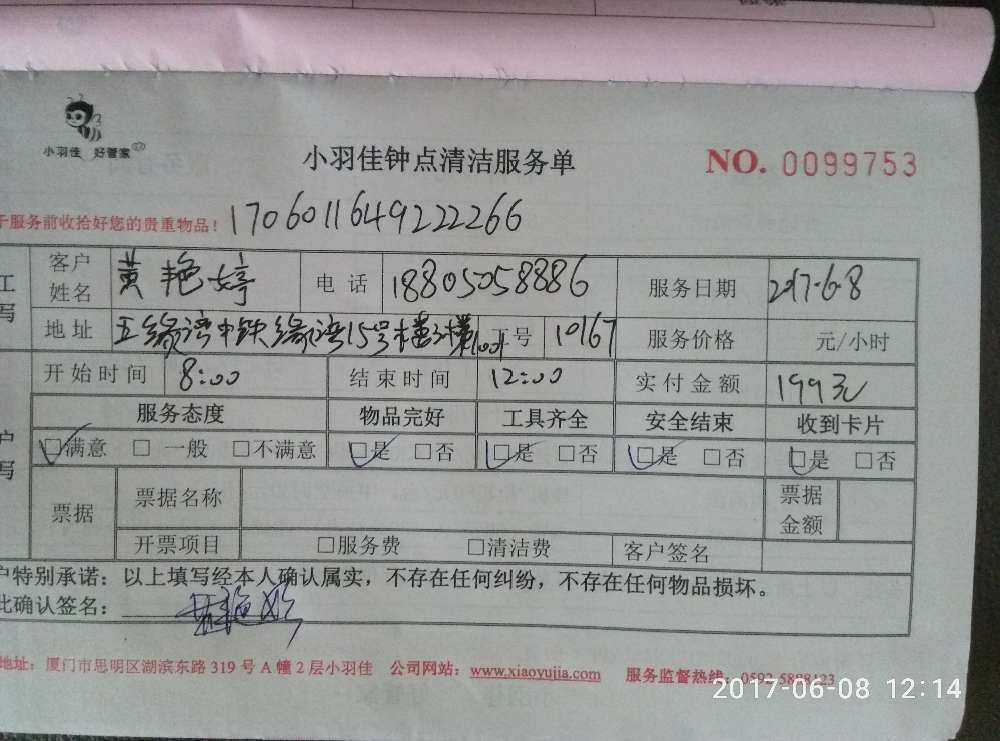 小羽佳 好管家
小羽佳钟点清洁服务单
NO. 0099753
于服务前收拾好您的贵重物品！ 1706011649222266
工
写
客户姓名 黄艳婷 电话 18805058886 服务日期 2017.6.8
地址 五缘湾中铁缘湾15号楼 1001 工号 10167 服务价格 元/小时
开始时间 8:00 结束时间 12:00 实付金额 199元
服务态度 物品完好 工具齐全 安全结束 收到卡片
户
写
☑满意 □一般 □不满意 ☑是 □否 ☑是 □否 ☑是 □否 ☑是 □否
票据 票据名称 票据金额
开票项目 □服务费 □清洁费 客户签名
户特别承诺：以上填写经本人确认属实，不存在任何纠纷，不存在任何物品损坏。
此确认签名：
地址：厦门市思明区湖滨东路 319 号 A 幢 2 层小羽佳 公司网站：www.xiaoyujia.com 服务监督热线：0592-5888123
2017-06-08 12:14